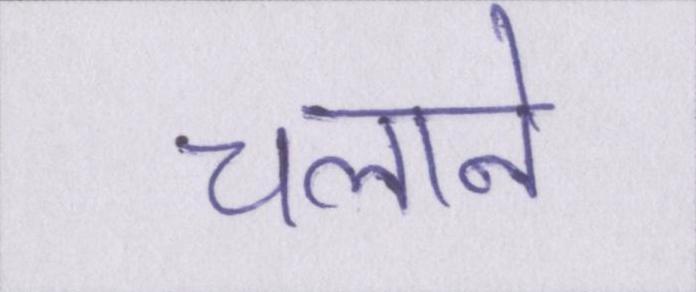 चलाने